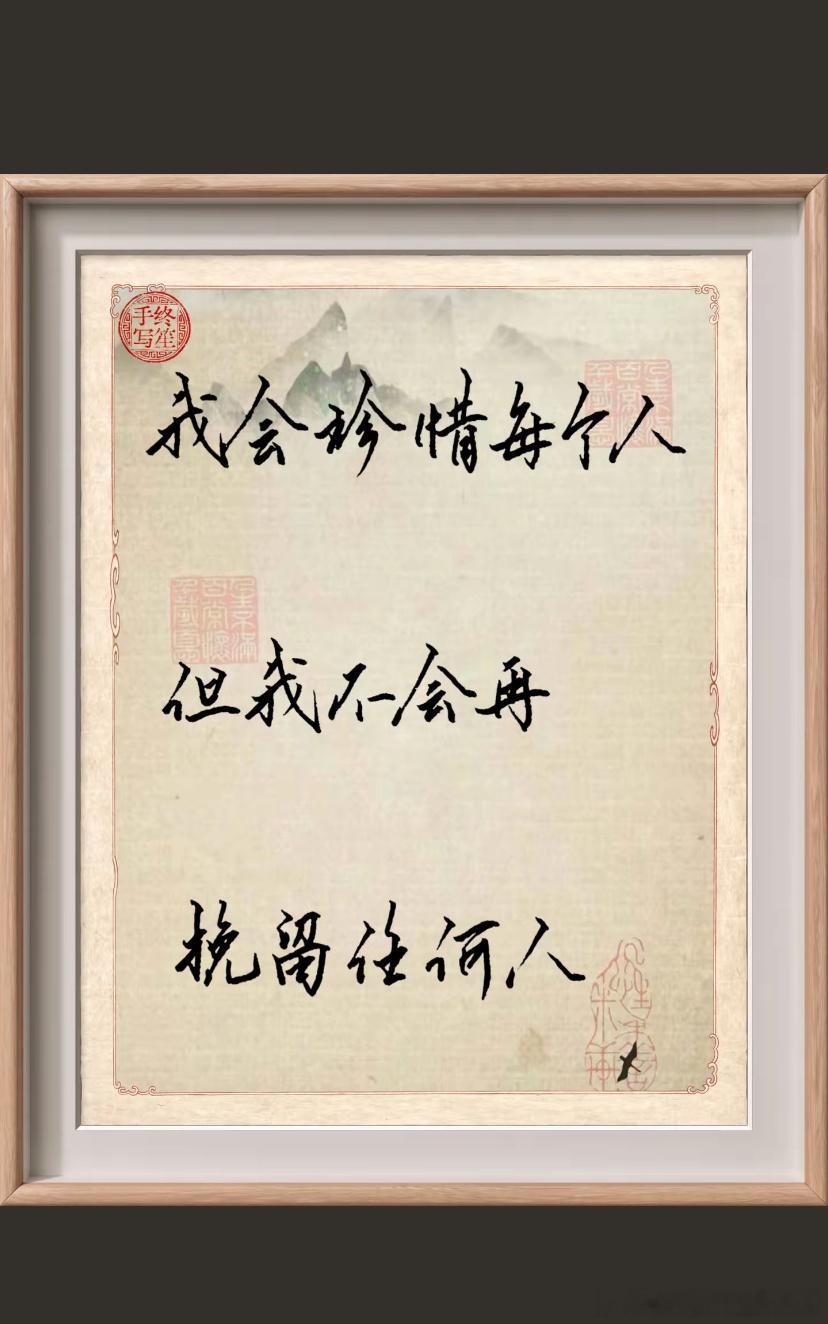 终笙
手写
我会珍惜每个人
但我不会再
挽留任何人